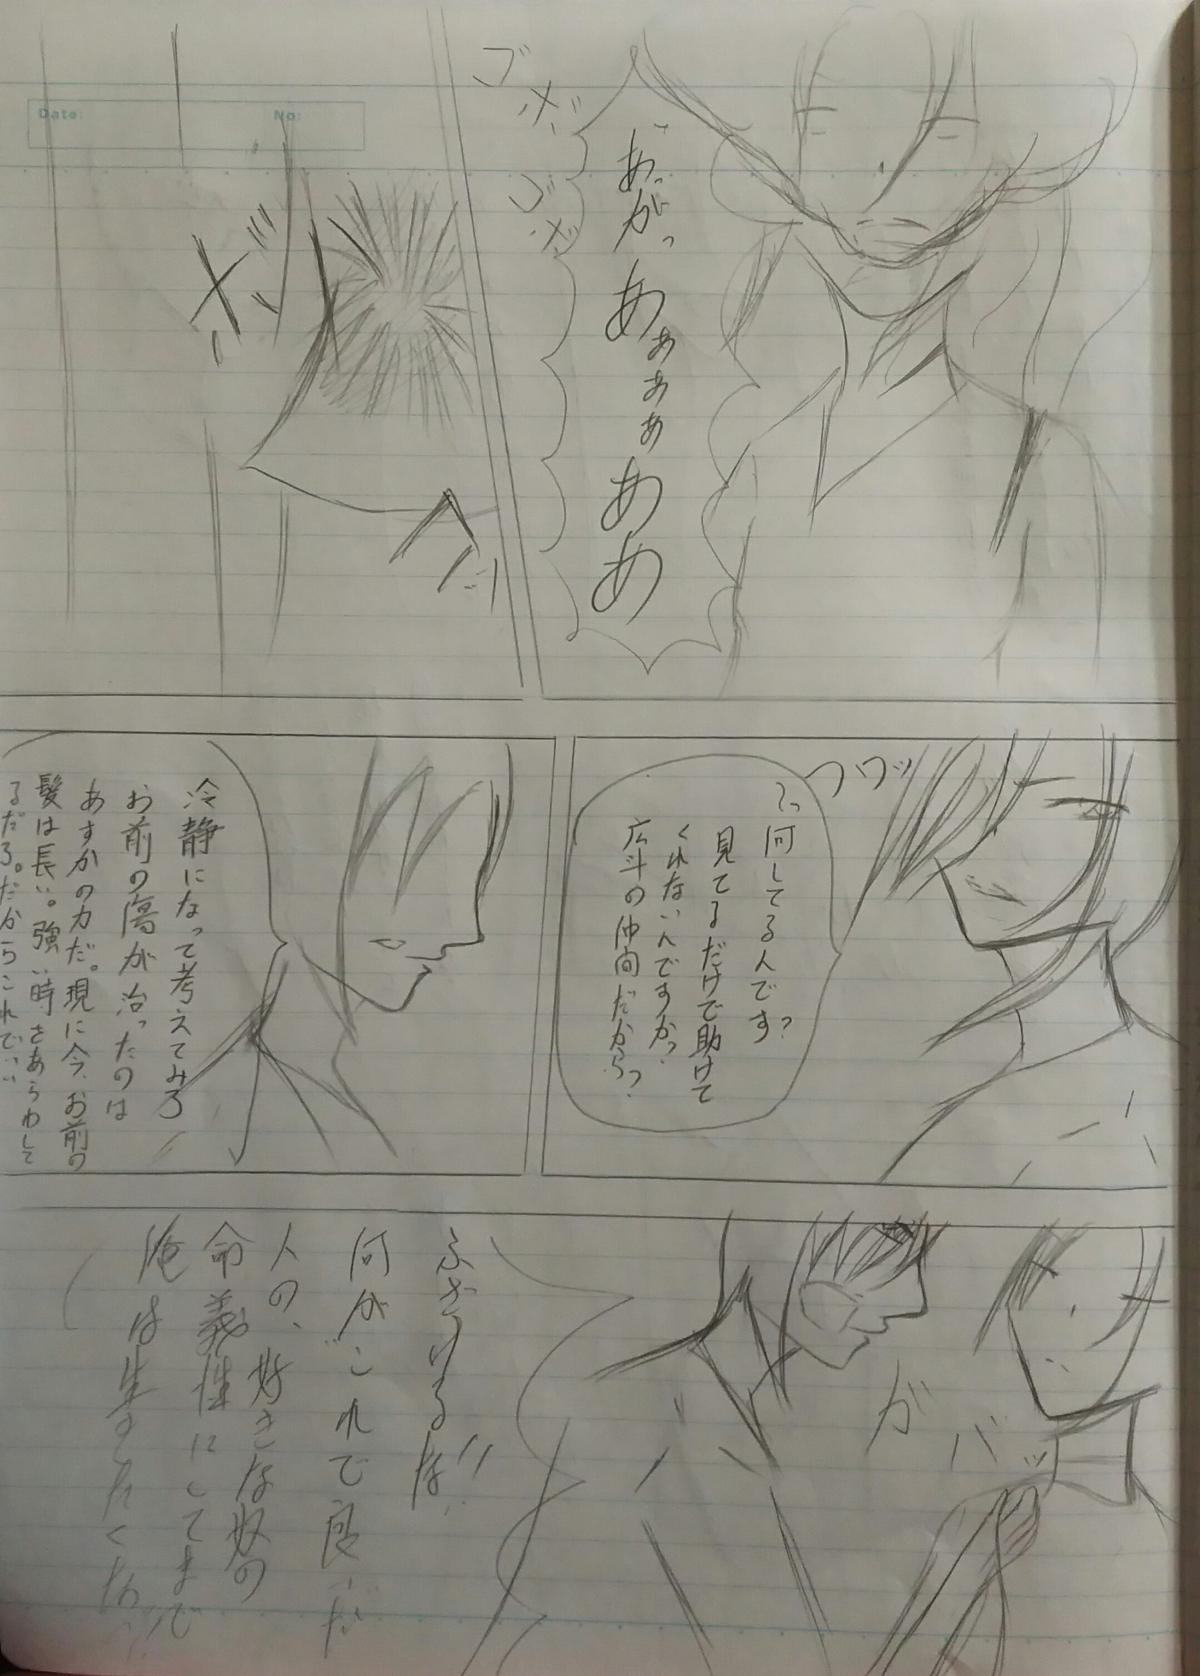 ゴホッ
ゴホッ
あっがっ
あぁぁぁああ
Date:
No:
フワッ
何してるんです?
見てるだけで助けて
くれないんですか?
広斗の仲間だから?
冷静になって考えてみろ
お前の傷が治ったのは
あすかの力だ。現に今、お前の
髪は長い。強い時をあらわして
るだろ。だからこれでいい
ガバッ
ふざけるな!!
何がこれで良いだ
人の、好きな奴の
命義性にしてまで
俺は生きたくない